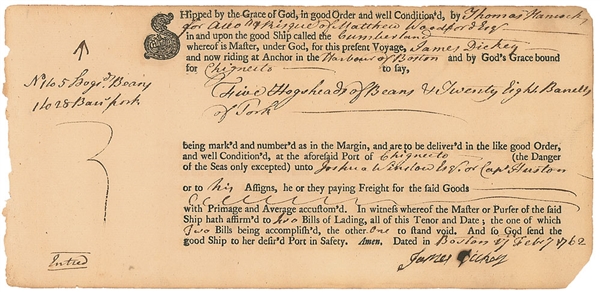 SHipped by the Grace of God, in good Order and well Condition'd, by Thomas Hancock
for Acco & Risque of Matthew Woodford Esqr
in and upon the good Ship called the Cumberland
whereof is Master, under God, for this present Voyage, James Dickey
and now riding at Anchor in the Harbour of Boston and by God's Grace bound
for Chignecto to say,
No. 1 to 5 Hogsd. Beans
1 to 28 Barrs pork
Five Hogsheads of Beans & Twenty Eight Barrells
of Pork
being mark'd and number'd as in the Margin, and are to be deliver'd in the like good Order,
and well Condition'd, at the aforesaid Port of Chignecto (the Danger
of the Seas only excepted) unto Joshua Winslow Esqr. or Capt. Huston
or to his Assigns, he or they paying Freight for the said Goods
with Primage and Average accustom'd. In witness whereof the Master or Purser of the said
Ship hath affirm'd to two Bills of Lading, all of this Tenor and Date; the one of which
Two Bills being accomplish'd, the other One to stand void. And so God send the
good Ship to her desir'd Port in Safety. Amen. Dated in Boston 27 Feby 1762
James Dickey
Entred